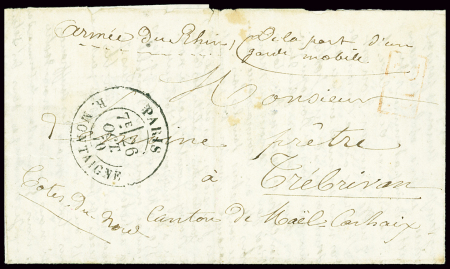 Armée du Rhin, De la part d'un
garde mobile
Monsieur
prêtre
à Trébrivan
Canton de Maël-Carhaix
Côtes du Nord
PARIS
R. MONTAIGNE
7E 26
OCT
70